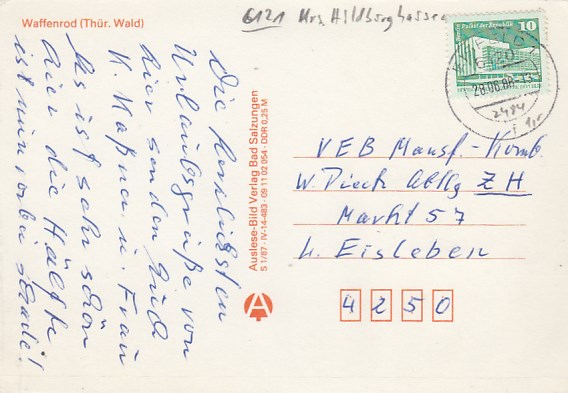 Waffenrod (Thür. Wald)
6121 Krs. Hildburghausen
Palast der Republik 10
28.06.88-13
Die herzlichsten
Urlaubsgrüße von
hier senden Euch
K. u. Frau
Es ist sehr schön
hier die Hälfte
ist nun vorbei schade!
Auslese-Bild Verlag Bad Salzungen
S 1/87 · IV-14-483 · 09 11 02 054 · DDR 0,25 M
A
VEB Mansf.-Komb.
W. Pieck Abtlg ZH
Markt 57
L. Eisleben
4250